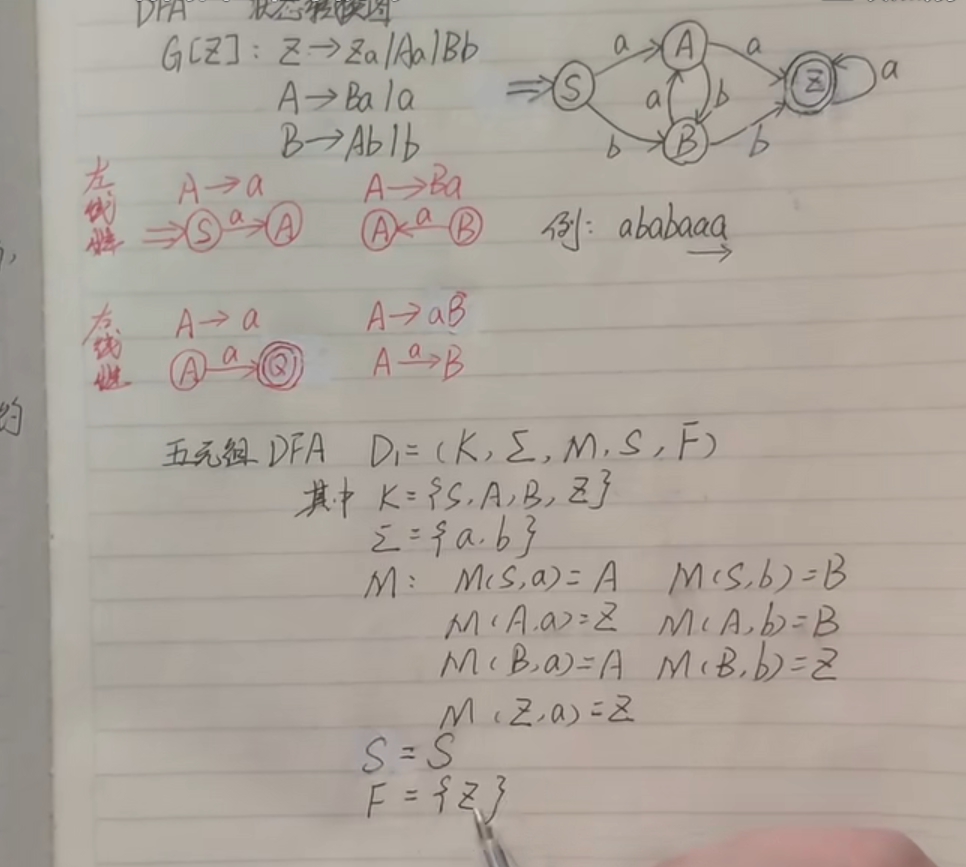 DFA 状态转换图
G[Z]: Z→Za|Aa|Bb
A→Ba|a
B→Ab|b
S a A a Z a
a b
b B b
左线性
A→a A→Ba
S a A A a B
例: ababaaa
右线性
A→a A→aB
A a Q A a→B
五元组DFA D₁=(K, Σ, M, S, F)
其中 K={S, A, B, Z}
Σ={a, b}
M: M(S,a)=A M(S,b)=B
M(A,a)=Z M(A,b)=B
M(B,a)=A M(B,b)=Z
M(Z,a)=Z
S=S
F={Z}